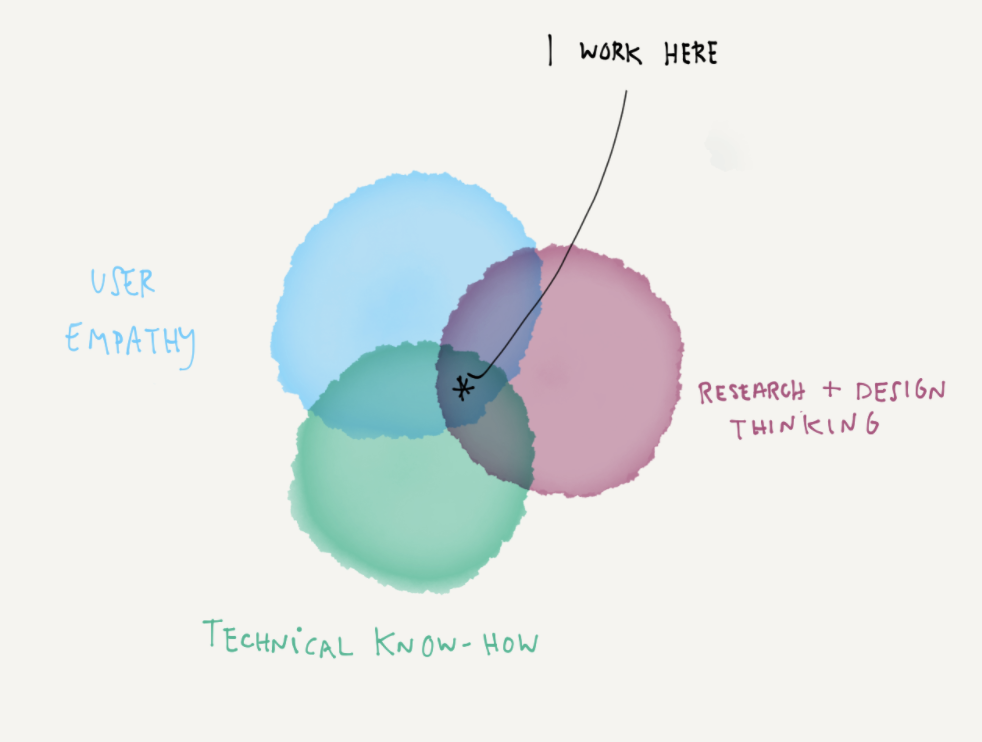 I WORK HERE
USER
EMPATHY
RESEARCH + DESIGN
THINKING
TECHNICAL KNOW-HOW